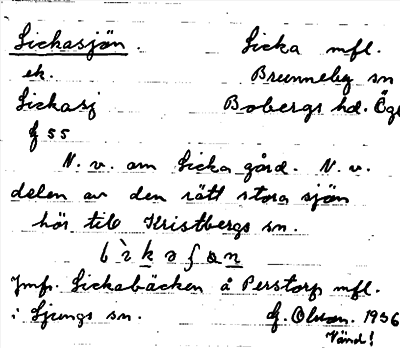 Sickasjön. Sicka mfl.
ek. Brunneby sn
Sickasj Bobergs hd. Ögl
f 55
N. v. om Sicka gård. N. v.
delen av den rätt stora sjön
hör till Kristbergs sn.
Jmfr. Sickabäcken å Perstorp mfl.
i Ljungs sn. G. Olson. 1936
Vänd!